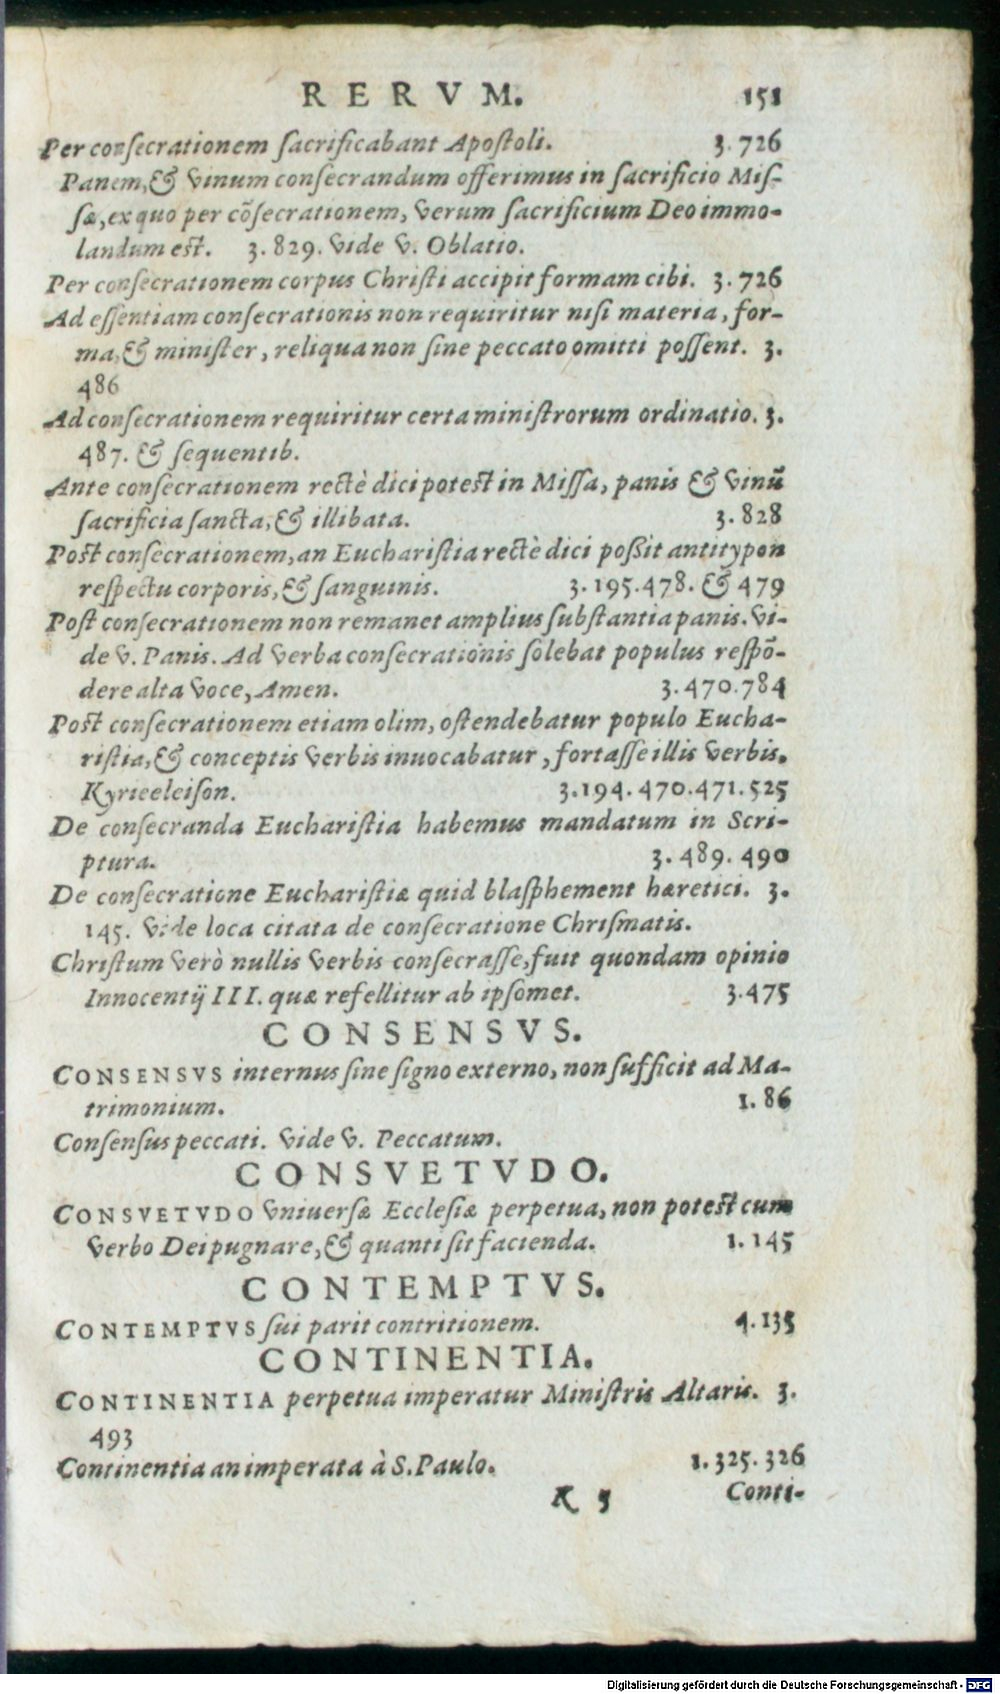 RERVM. 151
Per conſecrationem ſacrificabant Apoſtoli. 3.726
Panem, & vinum conſecrandum offerimus in ſacrificio Miſ-
ſæ, ex quo per cõſecrationem, verum ſacrificium Deo immo-
landum est. 3.829. vide v. Oblatio.
Per conſecrationem corpus Chriſti accipit formam cibi. 3.726
Ad eſſentiam conſecrationis non requiritur niſi materia, for-
ma, & miniſter, reliqua non ſine peccato omitti poſſent. 3.
486
Ad conſecrationem requiritur certa miniſtrorum ordinatio. 3.
487. & ſequentib.
Ante conſecrationem rectè dici potest in Miſſa, panis & vinũ
ſacrificia ſancta, & illibata. 3.828
Post conſecrationem, an Euchariſtia rectè dici poßit antitypon
reſpectu corporis, & ſanguinis. 3.195.478. & 479
Poſt conſecrationem non remanet amplius ſubſtantia panis. vi-
de v. Panis. Ad verba conſecrationis ſolebat populus reſpõ-
dere alta voce, Amen. 3.470.784
Post conſecrationem etiam olim, oſtendebatur populo Eucha-
riſtia, & conceptis verbis inuocabatur, fortaſſe illis verbis.
Kyrieeleiſon. 3.194.470.471.525
De conſecranda Euchariſtia habemus mandatum in Scri-
ptura. 3.489.490
De conſecratione Euchariſtiæ quid blaſphement hæretici. 3.
145. vide loca citata de conſecratione Chriſmatis.
Chriſtum verò nullis verbis conſecraſſe, fuit quondam opinio
Innocentij III. quæ refellitur ab ipſomet. 3.475
CONSENSVS.
CONSENSVS internus ſine ſigno externo, non ſufficit ad Ma-
trimonium. 1.86
Conſenſus peccati. vide v. Peccatum.
CONSVETVDO.
CONSVETVDO vniuerſæ Eccleſiæ perpetua, non potest cum
verbo Dei pugnare, & quanti ſit facienda. 1.145
CONTEMPTVS.
CONTEMPTVS ſui parit contritionem. 4.135
CONTINENTIA.
CONTINENTIA perpetua imperatur Miniſtris Altaris. 3.
493
Continentia an imperata à S. Paulo. 1.325.326
K 5 Conti-
Digitalisierung gefördert durch die Deutsche Forschungsgemeinschaft - DFG